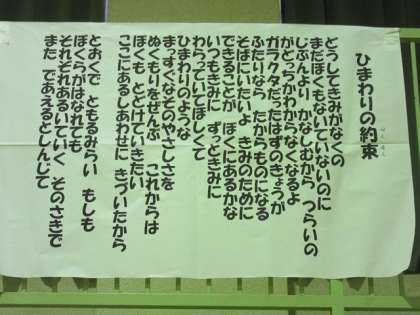 ひまわりの約束
やくそく
どうしてきみがなくの
まだぼくもないていないのに
じぶんより かなしむから つらいの
がどっちかわからなくなるよ
ガラクタだったはずのきょうが
ふたりなら たからものになる
そばにいたいよ きみのために
できることが ぼくにあるかな
いつもきみに ずっときみに
わらっていてほしくて
ひまわりのような
まっすぐなそのやさしさを
ぬくもりをぜんぶ これからは
ぼくも とどけていきたい
ここにあるしあわせに きづいたから
とおくで ともるみらい もしも
ぼくらがはなれても
それぞれあるいていく そのさきで
また であえるとしんじて